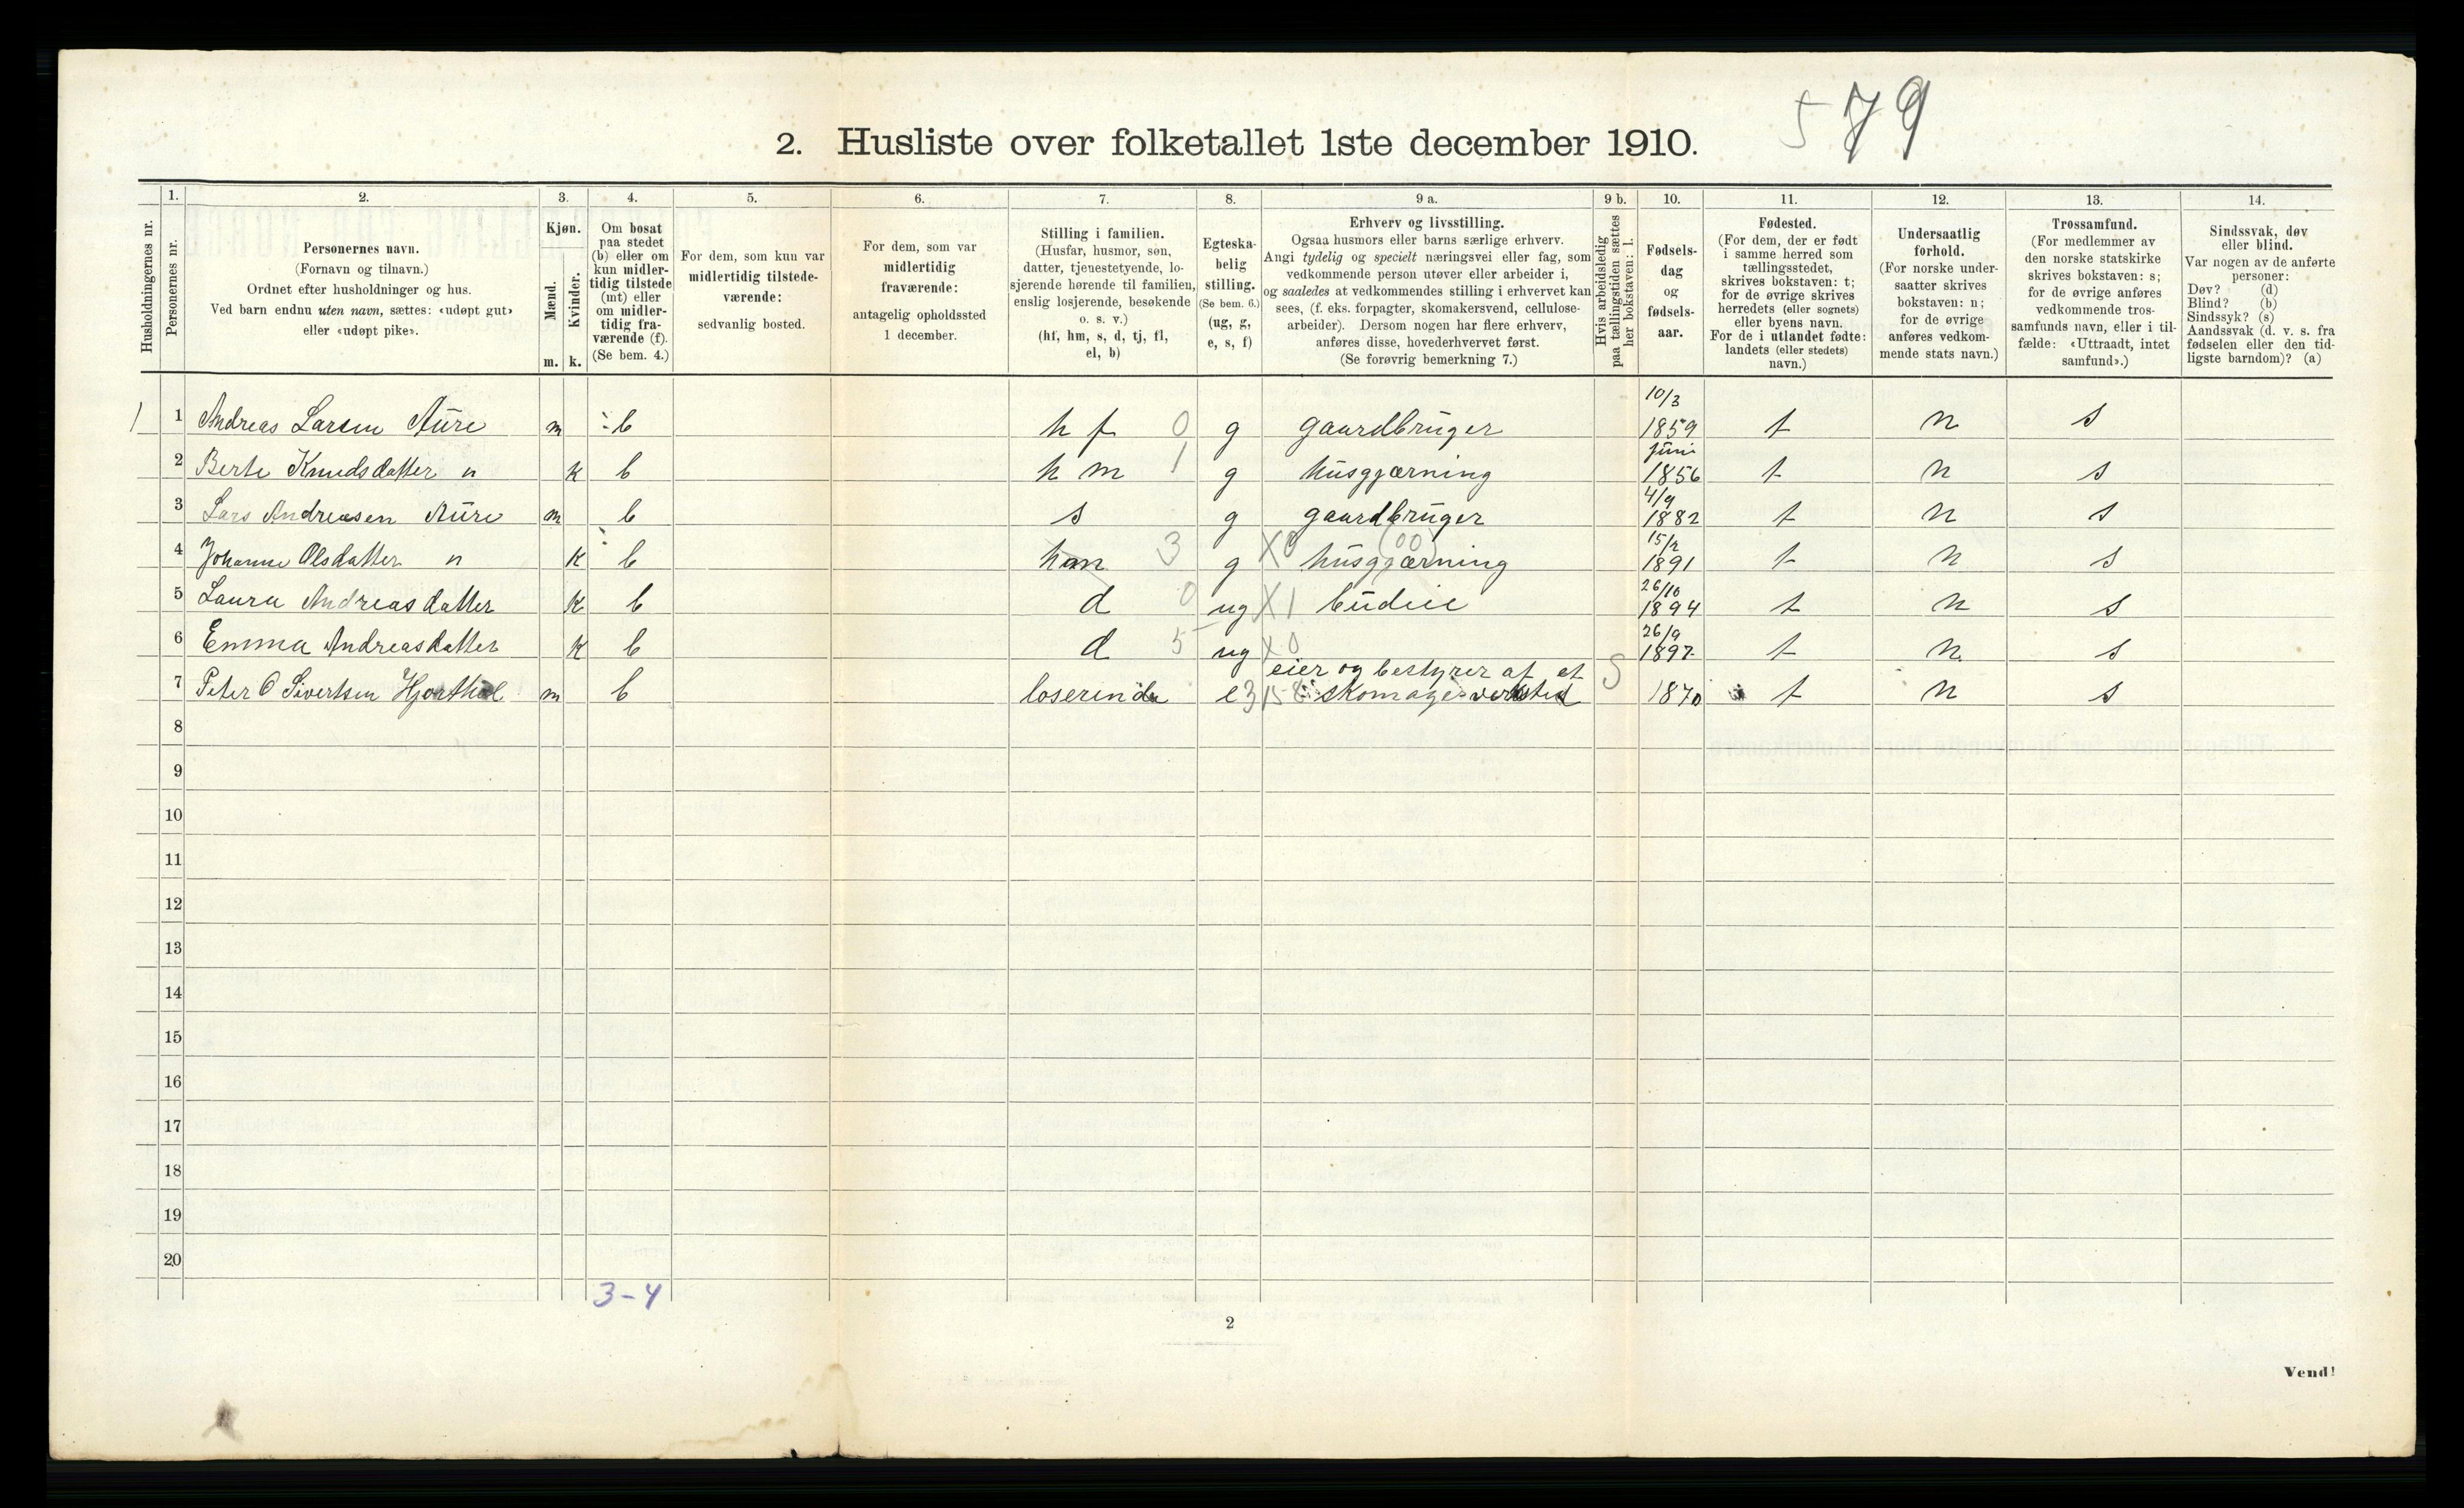 579
2. Husliste over folketallet 1ste december 1910.
Husholdningernes nr.
1. Personernes nr.
2. Personernes navn.
(Fornavn og tilnavn.)
Ordnet efter husholdninger og hus.
Ved barn endnu uten navn, sættes: «udøpt gut»
eller «udøpt pike».
3. Kjøn.
Mænd. m.
Kvinder. k.
4. Om bosat
paa stedet
(b) eller om
kun midler-
tidig tilstede
(mt) eller
om midler-
tidig fra-
værende (f).
(Se bem. 4.)
5. For dem, som kun var
midlertidig tilstede-
værende:
sedvanlig bosted.
6. For dem, som var
midlertidig
fraværende:
antagelig opholdssted
1 december.
7. Stilling i familien.
(Husfar, husmor, søn,
datter, tjenestetyende, lo-
sjerende hørende til familien,
enslig losjerende, besøkende
o. s. v.)
(hf, hm, s, d, tj, fl,
el, b)
8. Egteska-
belig
stilling.
(Se bem. 6.)
(ug, g,
e, s, f)
9 a. Erhverv og livsstilling.
Ogsaa husmors eller barns særlige erhverv.
Angi tydelig og specielt næringsvei eller fag, som
vedkommende person utøver eller arbeider i,
og saaledes at vedkommendes stilling i erhvervet kan
sees, (f. eks. forpagter, skomakersvend, cellulose-
arbeider). Dersom nogen har flere erhverv,
anføres disse, hovederhvervet først.
(Se forøvrig bemerkning 7.)
9 b. Hvis arbeidsledig
paa tællingstiden sættes
her bokstaven: l.
10. Fødsels-
dag
og
fødsels-
aar.
11. Fødested.
(For dem, der er født
i samme herred som
tællingsstedet,
skrives bokstaven: t;
for de øvrige skrives
herredets (eller sognets)
eller byens navn.
For de i utlandet fødte:
landets (eller stedets)
navn.)
12. Undersaatlig
forhold.
(For norske under-
saatter skrives
bokstaven: n;
for de øvrige
anføres vedkom-
mende stats navn.)
13. Trossamfund.
(For medlemmer av
den norske statskirke
skrives bokstaven: s;
for de øvrige anføres
vedkommende tros-
samfunds navn, eller i til-
fælde: «Uttraadt, intet
samfund».)
14. Sindssvak, døv
eller blind.
Var nogen av de anførte
personer:
Døv? (d)
Blind? (b)
Sindssyk? (s)
Aandssvak (d. v. s. fra
fødselen eller den tid-
ligste barndom)? (a)
1 1 Andreas Larsen Aüre m b h f 0 g gaardbrüger 10/3 1859 t n s
2 Berte Knudsdatter " k b h m 1 g hüsgjærning Juni 1856 t n s
3 Lars Andreasen Aüre m b s g gaardbrüger 4/9 1882 t n s
4 Johanne Olsdatter " k b hm 3 g X0 (00) hüsgjærning 15/2 1891 t n s
5 Laura Andreasdatter k b d 0 ug X1 büdeie 26/10 1894 t n s
6 Emma Andreasdatter k b d 5 ug X0 26/9 1897 t n s
7 Peter O Sivertsen Hjorthol m b loserende e 3158 eier og bestyrer af et
skomagerverksted S 1870 t n s
8
9
10
11
12
13
14
15
16
17
18
19
20
3-4
2
Vend!